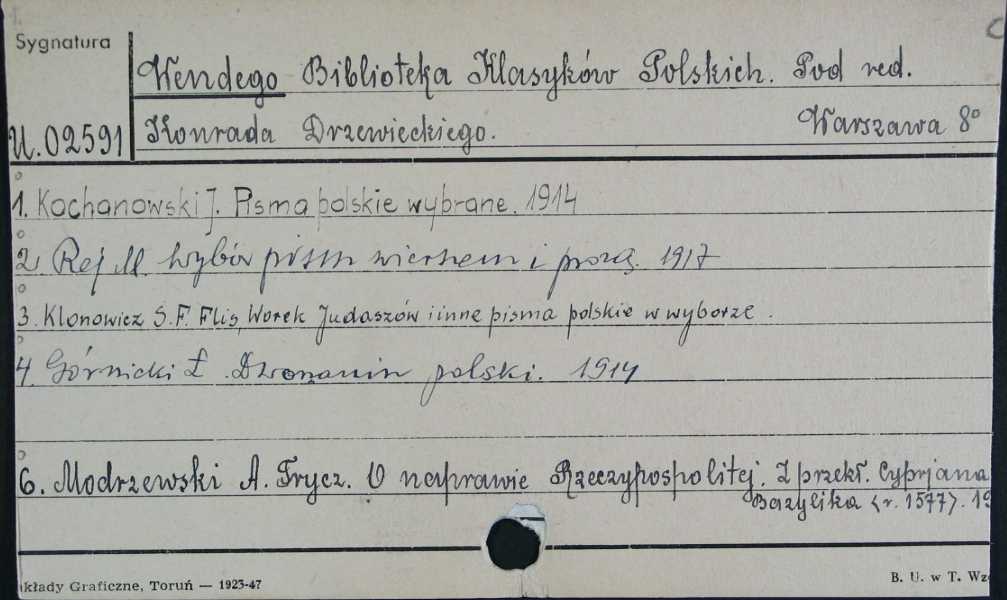 Sygnatura
Wendego Biblioteka Klasyków Polskich. Pod red.
U. 02591
Konrada Drzewieckiego. Warszawa 8°
1. Kochanowski J. Pisma polskie wybrane. 1914
2 Rej M wybór pism wierszem i prozą. 1917
3. Klonowicz S. F. Flis, Worek Judaszów i inne pisma polskie w wyborze.
4. Górnicki Ł. Dworzanin polski. 1914
6. Modrzewski A. Frycz. O naprawie Rzeczypospolitej. Z przekł. Cyprjana
Bazylika <r. 1577>. 19
kłady Graficzne, Toruń — 1923-47
B. U. w T. Wz